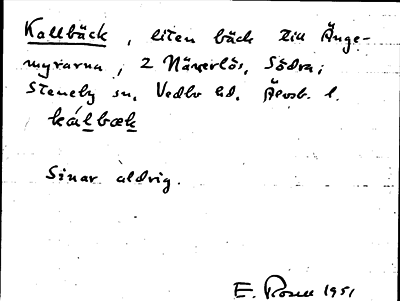 Kallbäck, liten bäck till Änge-
myrarna, 2 Näverlös, Södra;
Steneby sn, Vedbo hd, Älvsb. l.
kálbæk
Sinar aldrig.
E. Rosell 1951